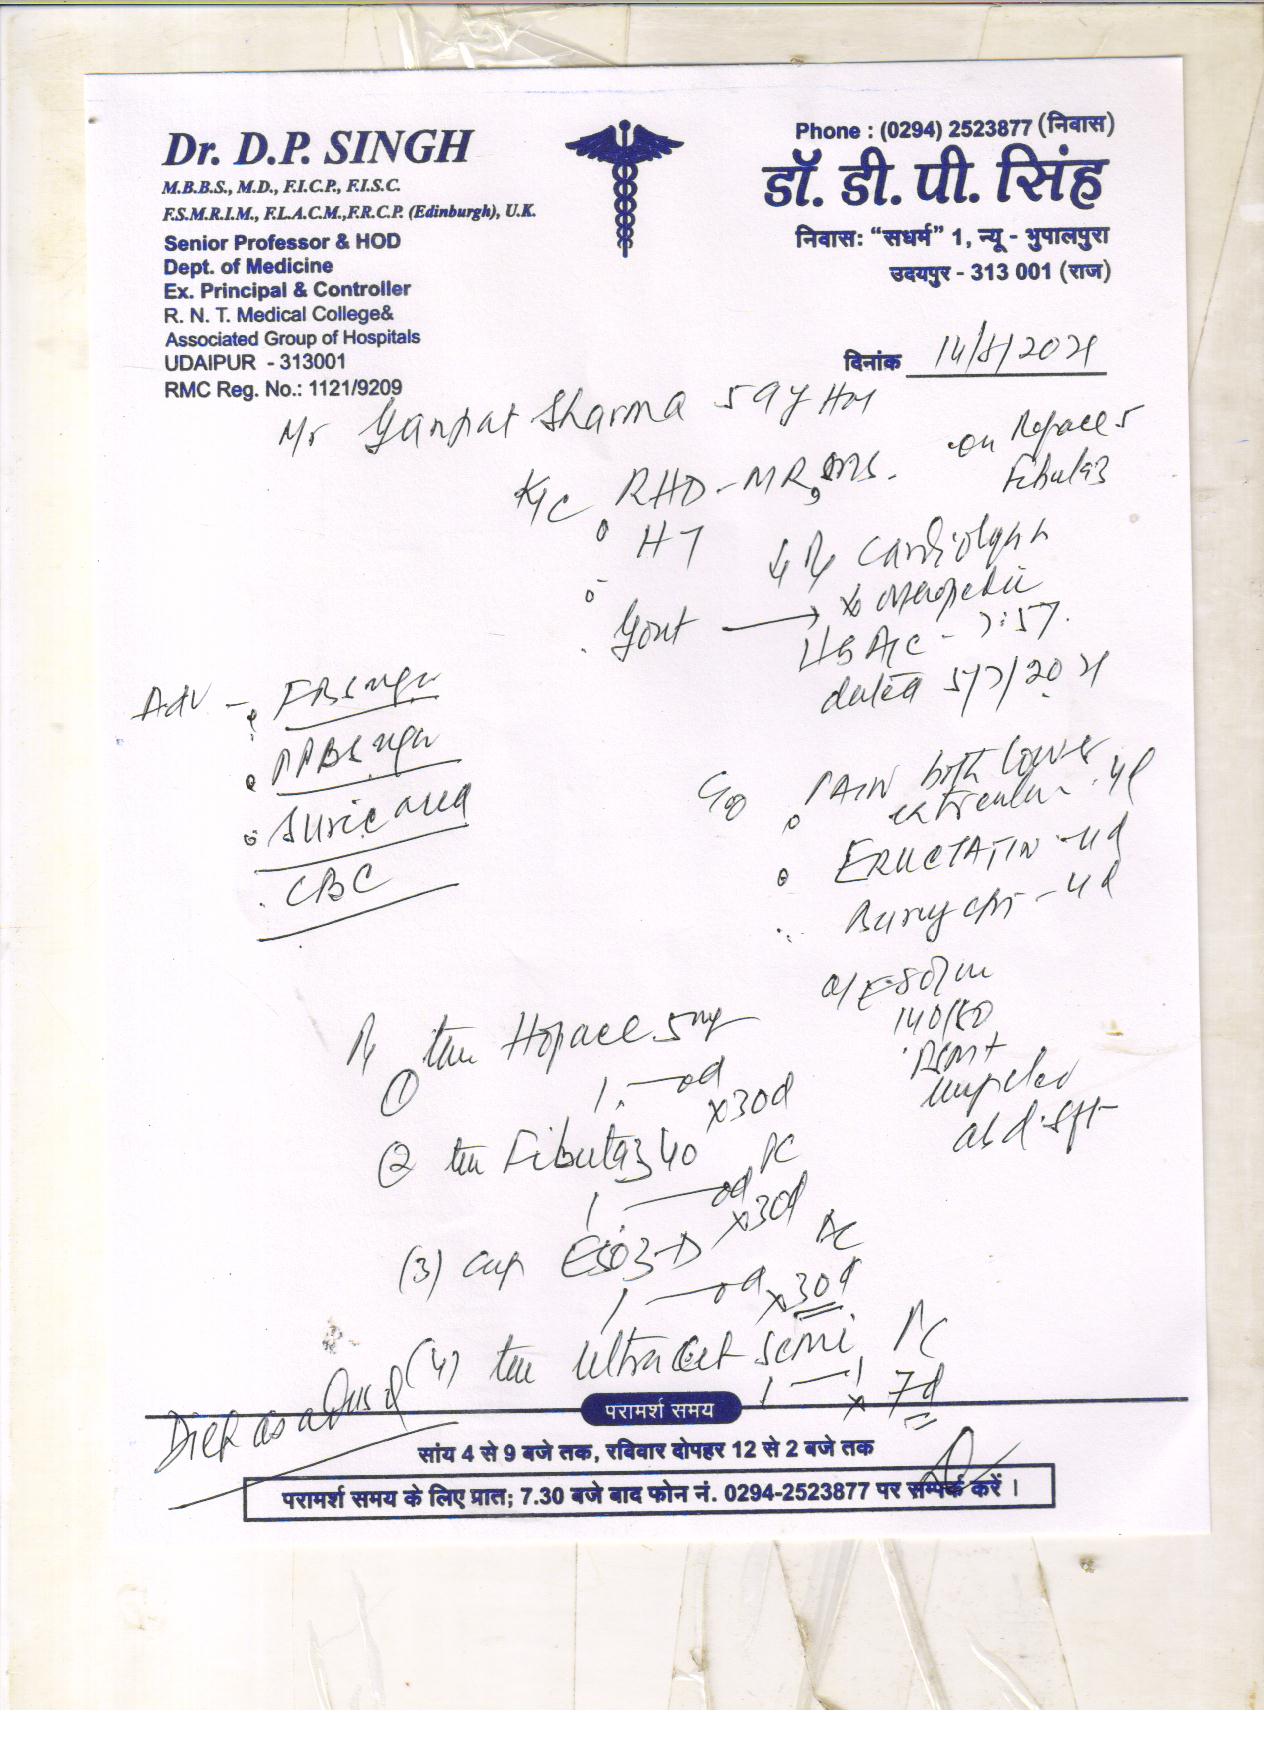 Dr. D.P. SINGH
M.B.B.S., M.D., F.I.C.P., F.I.S.C.
F.S.M.R.I.M., F.L.A.C.M.,F.R.C.P. (Edinburgh), U.K.
Senior Professor & HOD
Dept. of Medicine
Ex. Principal & Controller
R. N. T. Medical College&
Associated Group of Hospitals
UDAIPUR - 313001
RMC Reg. No.: 1121/9209
Phone : (0294) 2523877 (निवास)
डॉ. डी. पी. सिंह
निवास: “सधर्म” 1, न्यू - भुपालपुरा
उदयपुर - 313 001 (राज)
दिनांक 14/8/2021
Mr Ganpat Sharma 59y
on Hopace 5
Fibutaz
K/C RHD - MR,
HT
Cardiologist
Gout → Orthopedic
HbA1C - 7.57.
dated 5/7/2021
Adv - FBSugar
PPBSugar
S uric acid
CBC
C/o PAIN both lower
4d
ERUCTATION - 4d
- 4d
O/E 80/m
140/80
abd. soft
Rx
① tab Hopace 5mg
1 — od
x30d
② tab Fibutaz 40 PC
1 — od
x30d
(3) cap ESOZ-D AC
1 — od x30d
(4) tab Ultracet semi PC
1 — 1 x 7d
Diet as advised
परामर्श समय
सांय 4 से 9 बजे तक, रविवार दोपहर 12 से 2 बजे तक
परामर्श समय के लिए प्रात; 7.30 बजे बाद फोन नं. 0294-2523877 पर सम्पर्क करें ।